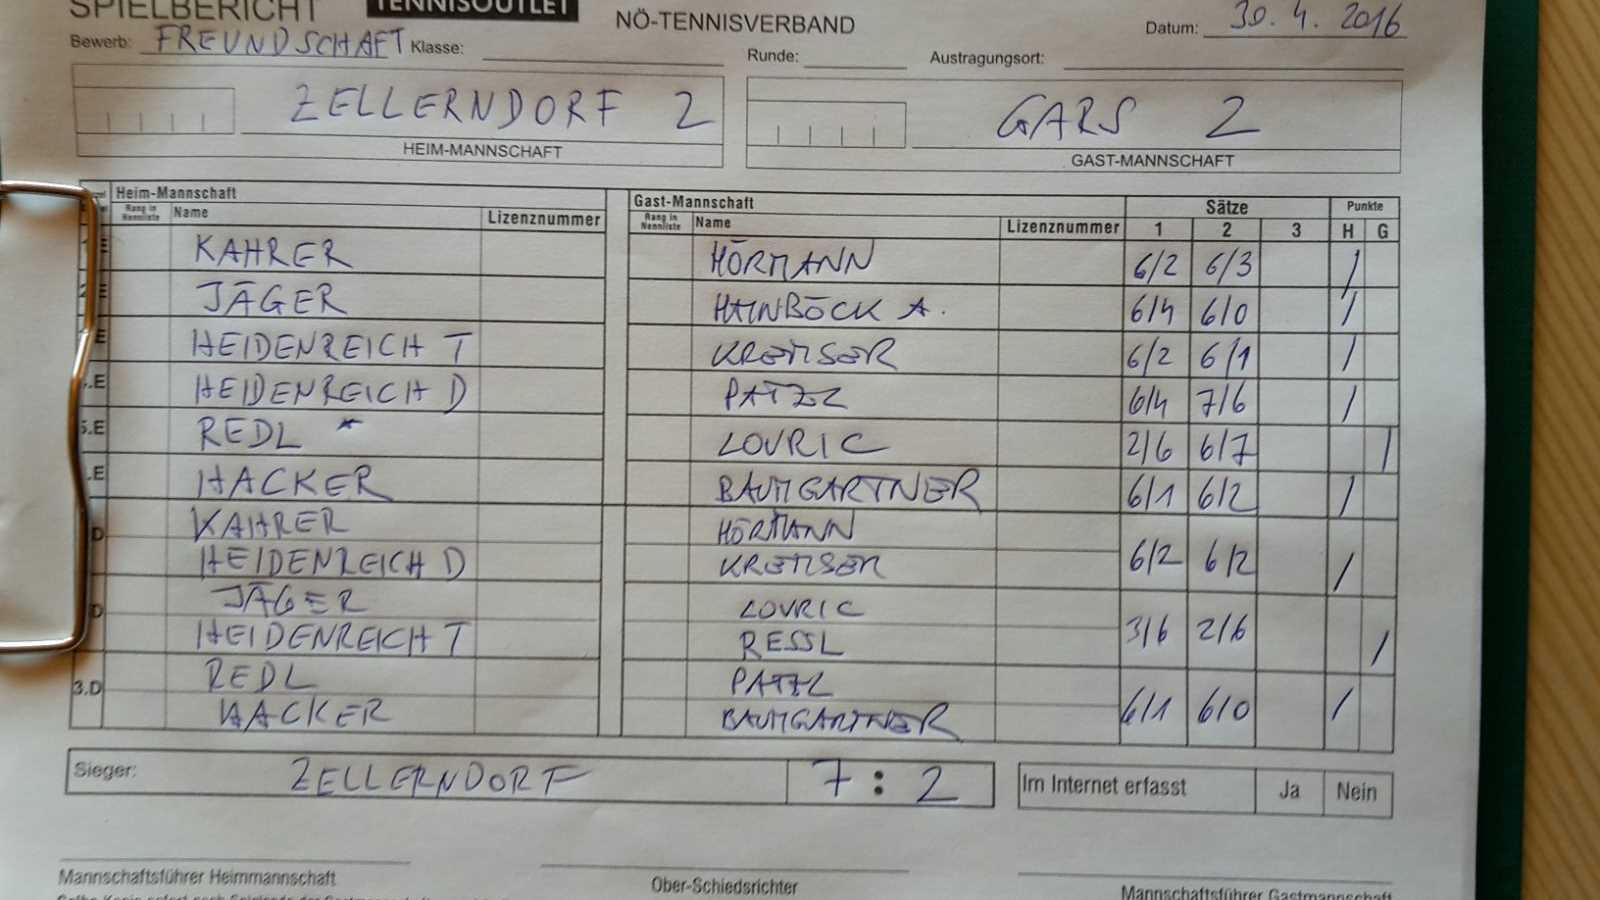 SPIELBERICHT TENNISOUTLET NÖ-TENNISVERBAND Datum: 30. 4. 2016
Bewerb: FREUNDSCHAFT Klasse: Runde: Austragungsort:
ZELLERNDORF 2 GARS 2
HEIM-MANNSCHAFT GAST-MANNSCHAFT
Heim-Mannschaft Gast-Mannschaft Sätze Punkte
Rang in Nennliste Name Lizenznummer Rang in Nennliste Name Lizenznummer 1 2 3 H G
KAHRER HÖRMANN 6/2 6/3 /
JÄGER HAINBÖCK A. 6/4 6/0 /
E HEIDENREICH T KREMSER 6/2 6/1 /
.E HEIDENREICH D PATZL 6/4 7/6 /
5.E REDL * LOVRIC 2/6 6/7 |
.E HACKER BAUMGARTNER 6/1 6/2 /
D KAHRER HÖRMANN
HEIDENREICH D KREMSER 6/2 6/2 /
D JÄGER LOVRIC
HEIDENREICH T RESSL 3/6 2/6 /
3.D REDL PATZL
HACKER BAUMGARTNER 6/1 6/0 /
Sieger: ZELLERNDORF 7 : 2 Im Internet erfasst Ja Nein
Mannschaftsführer Heimmannschaft Ober-Schiedsrichter Mannschaftsführer Gastmannschaft